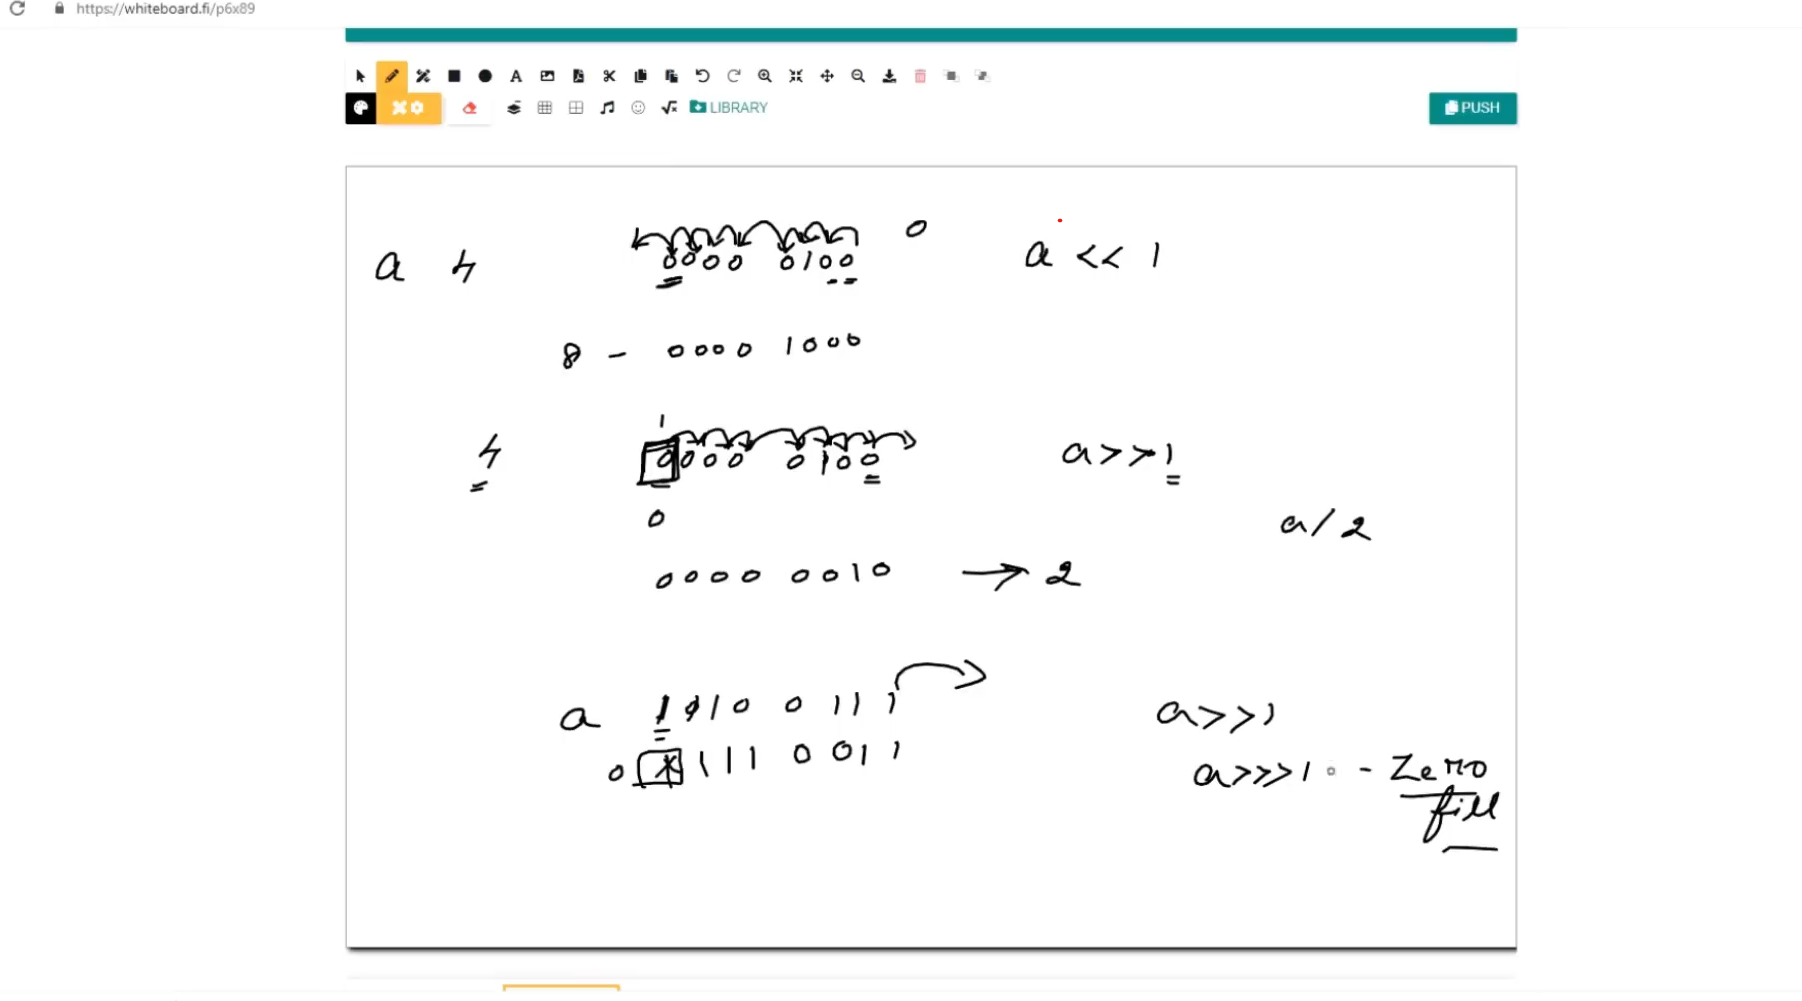 https://whiteboard.fi/p6x89
LIBRARY
PUSH
0
a 4 0000 0100 a << 1
8 - 0000 1000
1
4 0000 0100 a>>1
0
a/2
0000 0010 → 2
a 1 1 0 0 1 1 1 a>>1
0 1 1 1 0 0 1 1 a>>>1 - Zero
fill